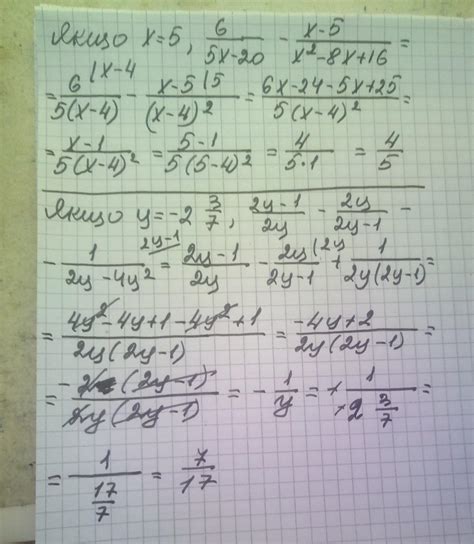 Якщо x=5, 6/(5x-20) - (x-5)/(x²-8x+16) =
= 6/(5(x-4)) |x-4 - (x-5)/((x-4)²) |5 = (6x-24-5x+25)/(5(x-4)²) =
= (x-1)/(5(x-4)²) = (5-1)/(5(5-4)²) = 4/(5·1) = 4/5
Якщо y=-2 3/7, (2y-1)/(2y) - (2y)/(2y-1) -
- 1/(2y-4y²) = (2y-1)/(2y) |2y-1 - (2y)/(2y-1) |2y + 1/(2y(2y-1)) =
= (4y²-4y+1-4y²+1)/(2y(2y-1)) = (-4y+2)/(2y(2y-1)) =
= (-2(2y-1))/(2y(2y-1)) = - 1/y = + 1/(+2 3/7) =
= 1/(17/7) = 7/17